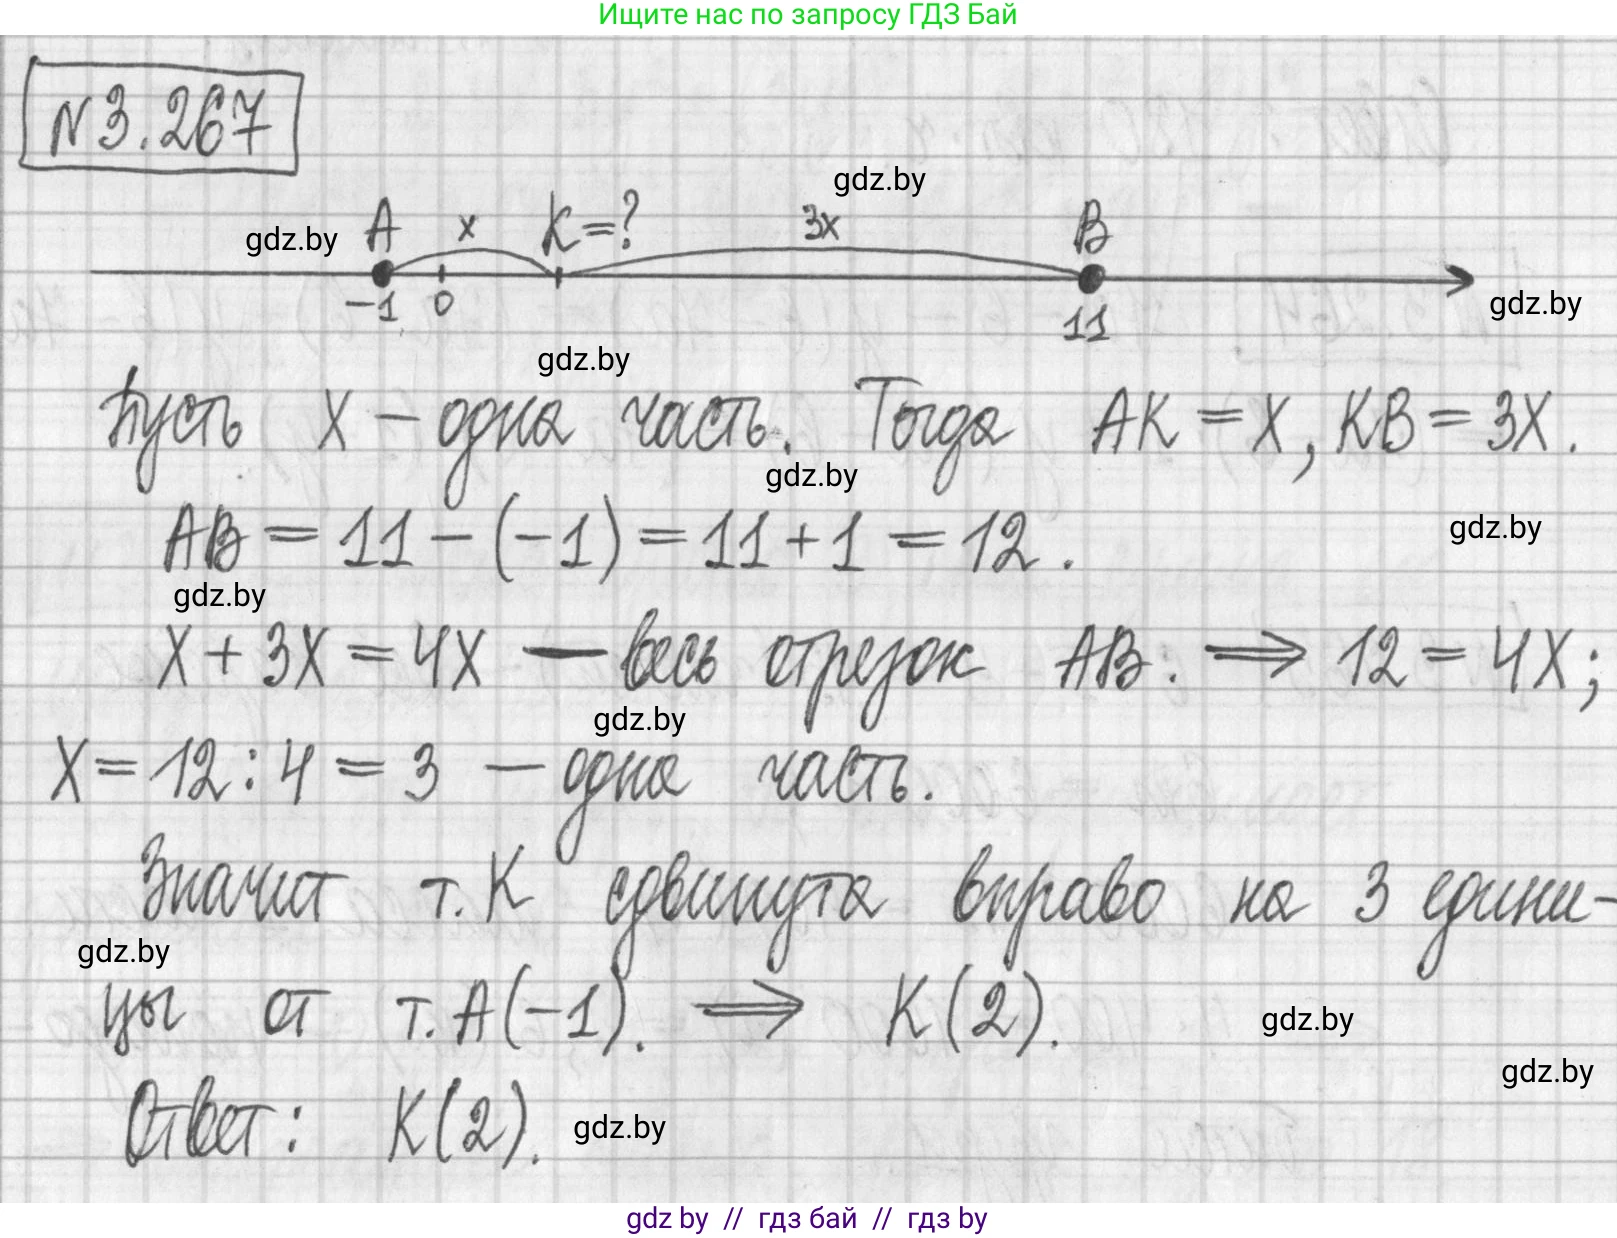 Ищите нас по запросу ГДЗ Бай
N3.267
gdz.by
gdz.by A x K=? 3x B
-1 0 11
gdz.by
gdz.by
Пусть X – одна часть. Тогда AK = X, KB = 3X.
gdz.by
AB = 11 – (–1) = 11 + 1 = 12.
gdz.by
gdz.by
X + 3X = 4X — весь отрезок AB. ⟹ 12 = 4X;
gdz.by
X = 12 : 4 = 3 – одна часть.
Значит т. K сдвинута вправо на 3 едини-
gdz.by
цы от т. A(–1). ⟹ K(2).
gdz.by
gdz.by
Ответ: K(2).
gdz.by
gdz by // гдз бай // гдз by